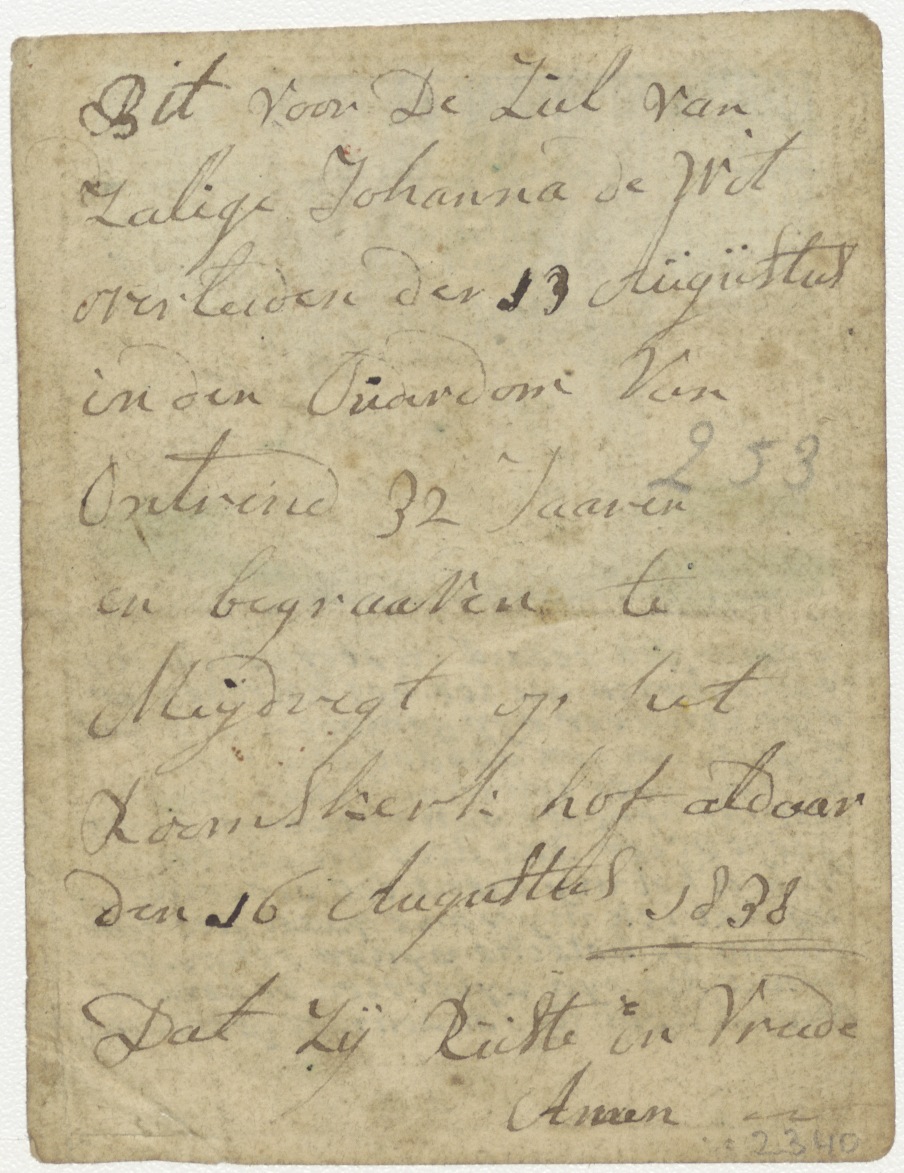 Bit voor De Ziel van
Zalige Johanna de Wit
overleeden den 13 Augustus
in den Ouderdom Van
Ontrend 32 Jaaren
253
en begraaven te
Meijdregt op het
Roomskerk hof aldaar
den 16 Augustus 1838
Dat Zij Ruste in Vreede
Amen
2340